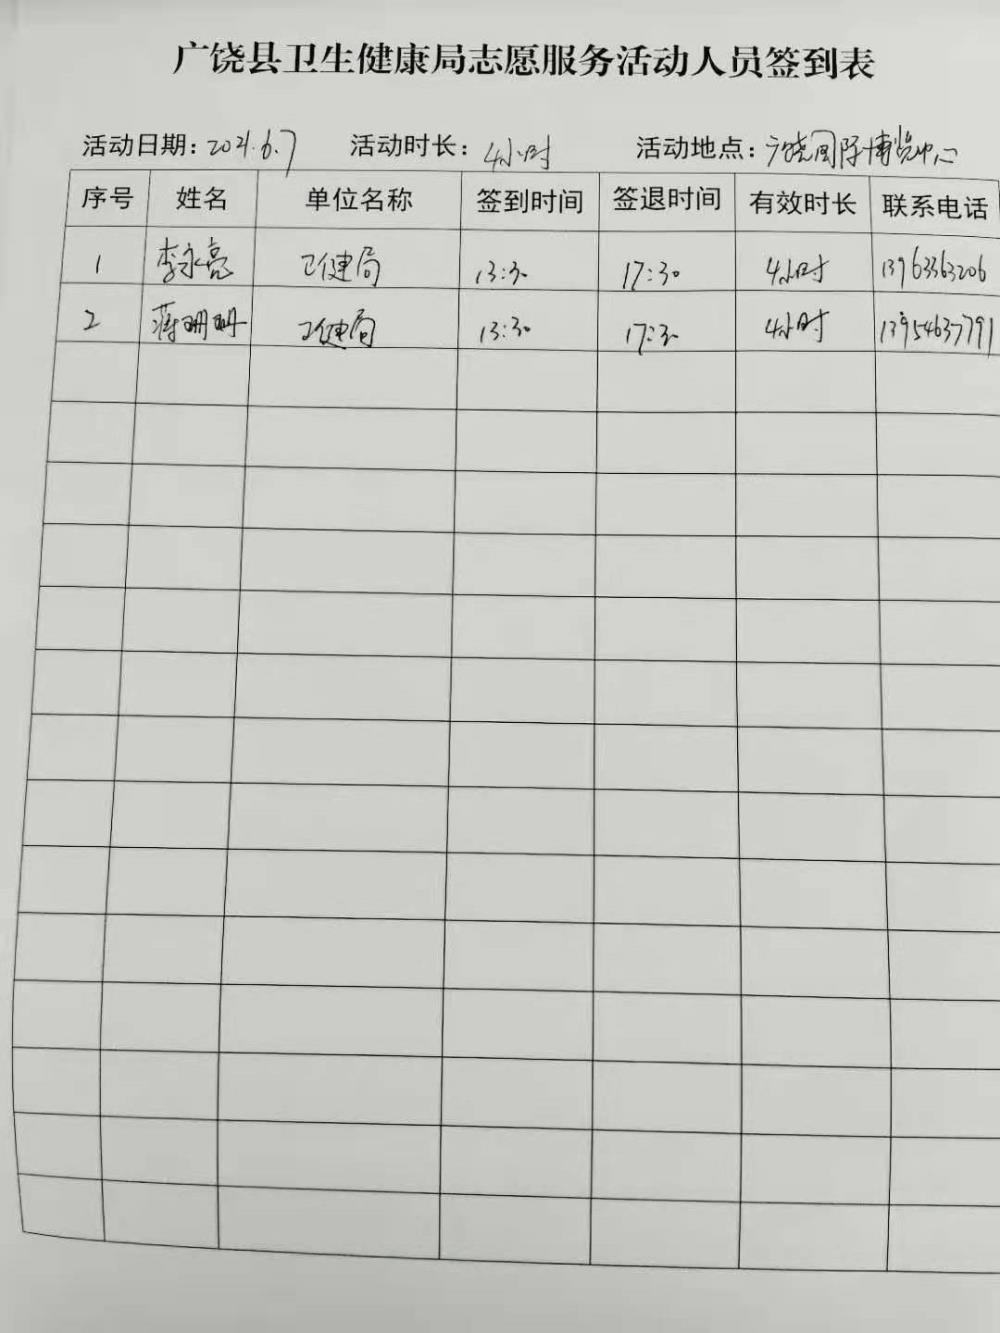 广饶县卫生健康局志愿服务活动人员签到表
活动日期：2021.6.7 活动时长：4小时 活动地点：广饶国际博览中心
序号 姓名 单位名称 签到时间 签退时间 有效时长 联系电话
1 李永亮 卫健局 13:30 17:30 4小时 13963363206
2 蒋珊珊 卫健局 13:30 17:30 4小时 13954637791